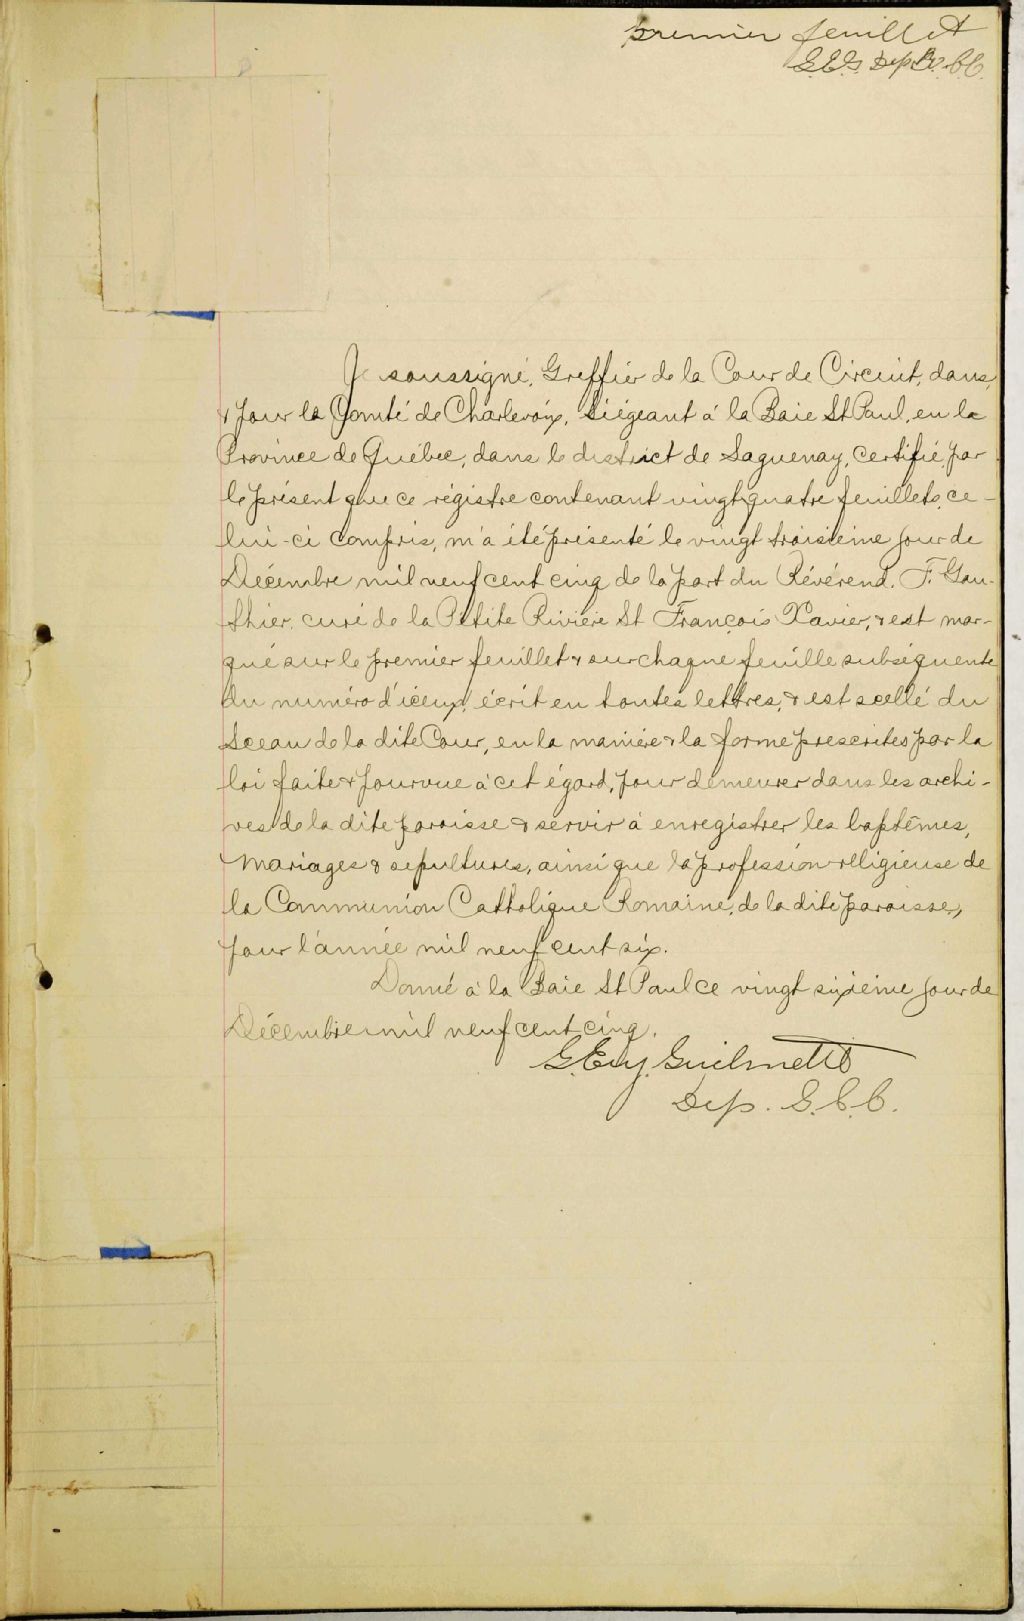 premier feuillet
G.E.G. Dep. G.C.C.
Je soussigné, Greffier de la Cour de Circuit, dans,
& pour le Comté de Charlevoix, siégeant à la Baie St Paul, en la
Province de Québec, dans le district de Saguenay, certifie par
le présent que ce régistre contenant vingt quatre feuillets, ce-
lui-ci compris, m'a été présenté le vingt troisième jour de
Décembre mil neuf cent cinq de la part du Révérend. F. Gau-
thier, curé de la Petite Rivière St François Xavier, & est mar-
qué sur le premier feuillet & sur chaque feuille subséquente
du numéro d'iceux, écrit en toutes lettres, & est scellé du
Sceau de la dite Cour, en la manière & la forme prescrites par la
loi faite & pourvue à cet égard, pour demeurer dans les archi-
ves de la dite paroisse & servir à enregistrer les baptêmes,
mariages & sépultures, ainsi que la profession religieuse de
la Communion Catholique Romaine, de la dite paroisse,
pour l'année mil neuf cent six.
Donné à la Baie St Paul ce vingt sixième jour de
Décembre mil neuf cent cinq.
G. Eug. Guilmette
Dep. G.C.C.